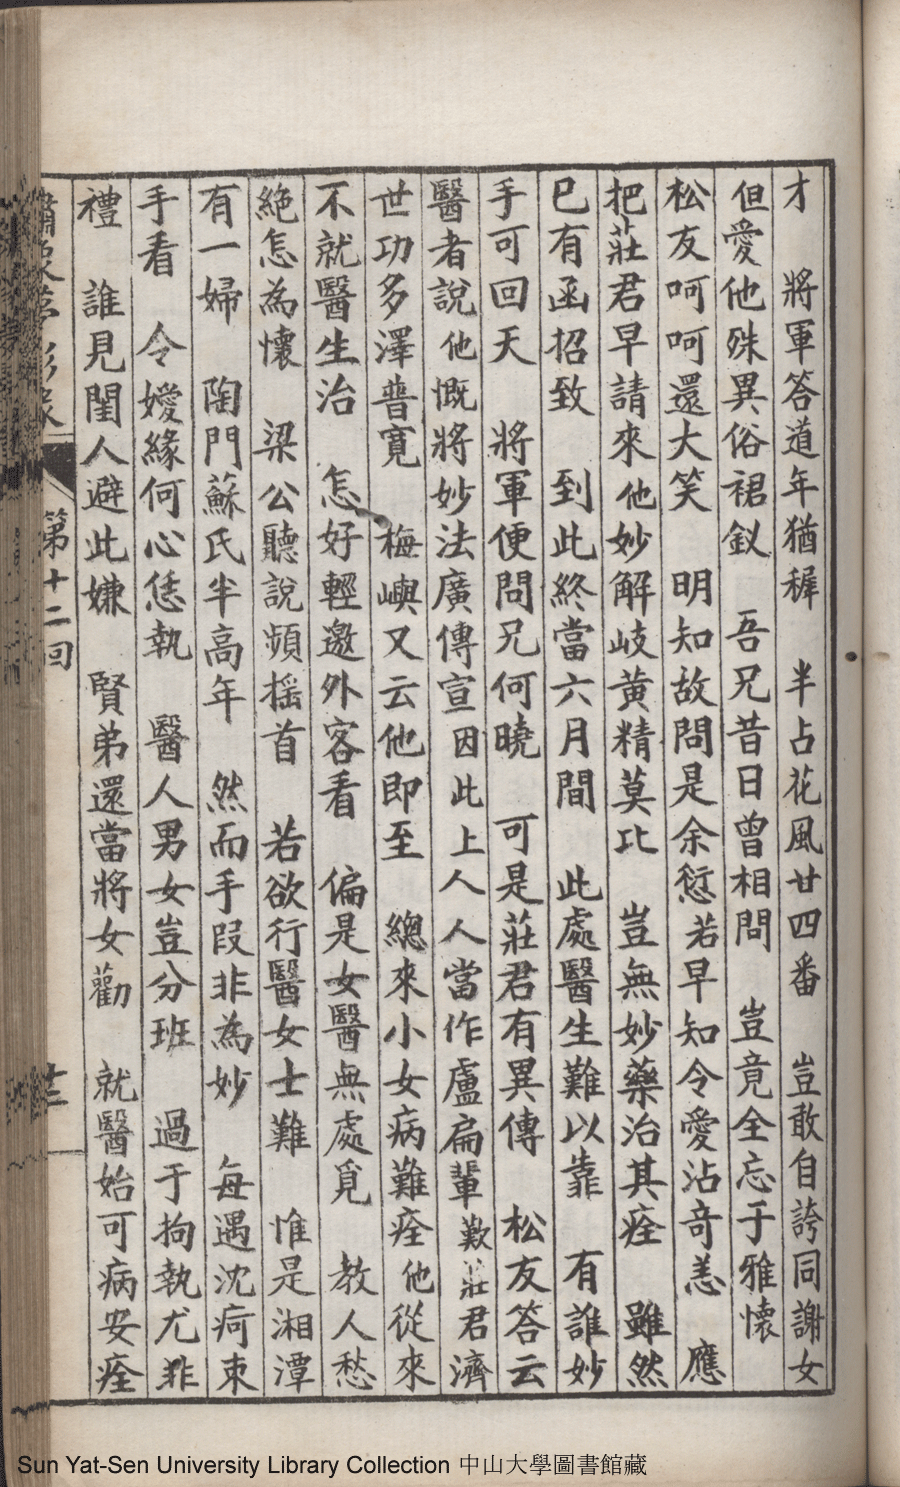 才　將軍答道年猶穉　半占花風廿四番　豈敢自誇同謝女
但愛他殊異俗裙釵　吾兄昔日曾相問　豈竟全忘于雅懷
松友呵呵還大笑　明知故問是余愆若早知令愛沾奇恙　應
把莊君早請來他妙解岐黃精莫比　豈無妙藥治其痊　雖然
已有函招致　到此終當六月間　此處醫生難以靠　有誰妙
手可回天　將軍便問兄何曉　可是莊君有異傳　松友答云
醫者說他慨將妙法廣傳宣因此上人人當作盧扁輩歎莊君濟
世功多澤普寬　梅嶼又云他即至　總來小女病難痊他從來
不就醫生治　怎好輕邀外客看　偏是女醫無處覓　教人愁
絕怎為懷　梁公聽說頻搖首　若欲行醫女士難　惟是湘潭
有一婦　陶門蘇氏半高年　然而手段非為妙　每遇沈疴束
手看　令嬡緣何心恁執　醫人男女豈分班　過于拘執尤非
禮　誰見閨人避此嫌　賢弟還當將女勸　就醫始可病安痊
第十二回
十三
Sun Yat-Sen University Library Collection 中山大學圖書館藏